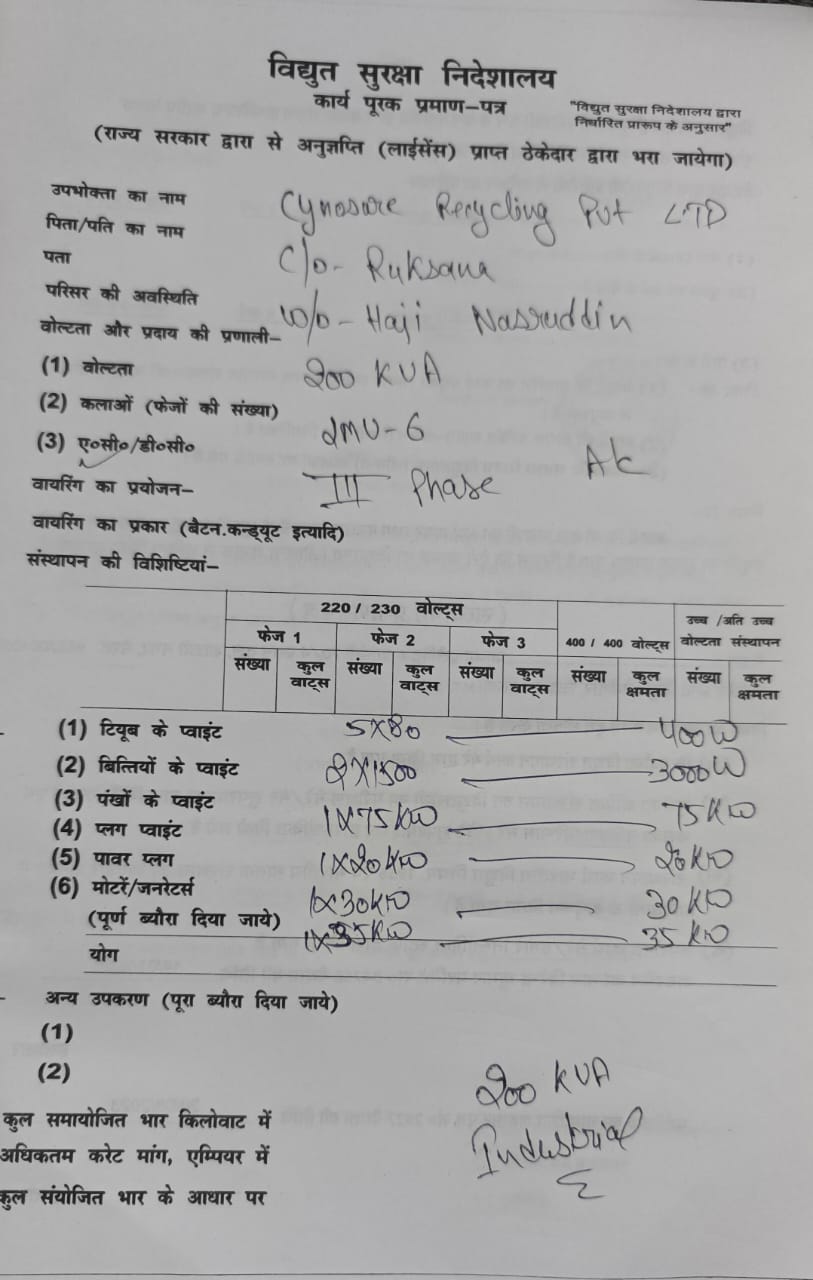 विद्युत सुरक्षा निदेशालय
कार्य पूरक प्रमाण–पत्र
"विद्युत सुरक्षा निदेशालय द्वारा
निर्धारित प्रारूप के अनुसार"
(राज्य सरकार द्वारा से अनुज्ञप्ति (लाईसेंस) प्राप्त ठेकेदार द्वारा भरा जायेगा)
उपभोक्ता का नाम Cynosure Recycling Pvt LTD
पिता/पति का नाम
पता C/o- Ruksana
परिसर की अवस्थिति
वोल्टता और प्रदाय की प्रणाली– W/o- Haji Nasruddin
(1) वोल्टता 200 KVA
(2) कलाओं (फेजों की संख्या)
LMV-6
(3) ए०सी०/डी०सी० AC
वायरिंग का प्रयोजन– III Phase
वायरिंग का प्रकार (बैटन.कन्ड्यूट इत्यादि)
संस्थापन की विशिष्टियां–
220 / 230 वोल्ट्स
400 / 400 वोल्ट्स
उच्च /अति उच्च
वोल्टता संस्थापन
फेज 1 फेज 2 फेज 3
संख्या कुल वाट्स संख्या कुल वाट्स संख्या कुल वाट्स संख्या कुल क्षमता संख्या कुल क्षमता
(1) टियूब के प्वाइंट 5X80 — 400W
(2) बित्तियों के प्वाइंट 2X1500 — 3000W
(3) पंखों के प्वाइंट
(4) प्लग प्वाइंट 1X75KW — 75KW
(5) पावर प्लग 1X20KW — 20KW
(6) मोटरें/जनरेटर्स
1X30KW — 30KW
(पूर्ण ब्यौरा दिया जाये)
1X35KW — 35KW
योग
अन्य उपकरण (पूरा ब्यौरा दिया जाये)
(1)
(2)
200 KVA
कुल समायोजित भार किलोवाट में
Industrial
अधिकतम करेट मांग, एम्पियर में
कुल संयोजित भार के आधार पर